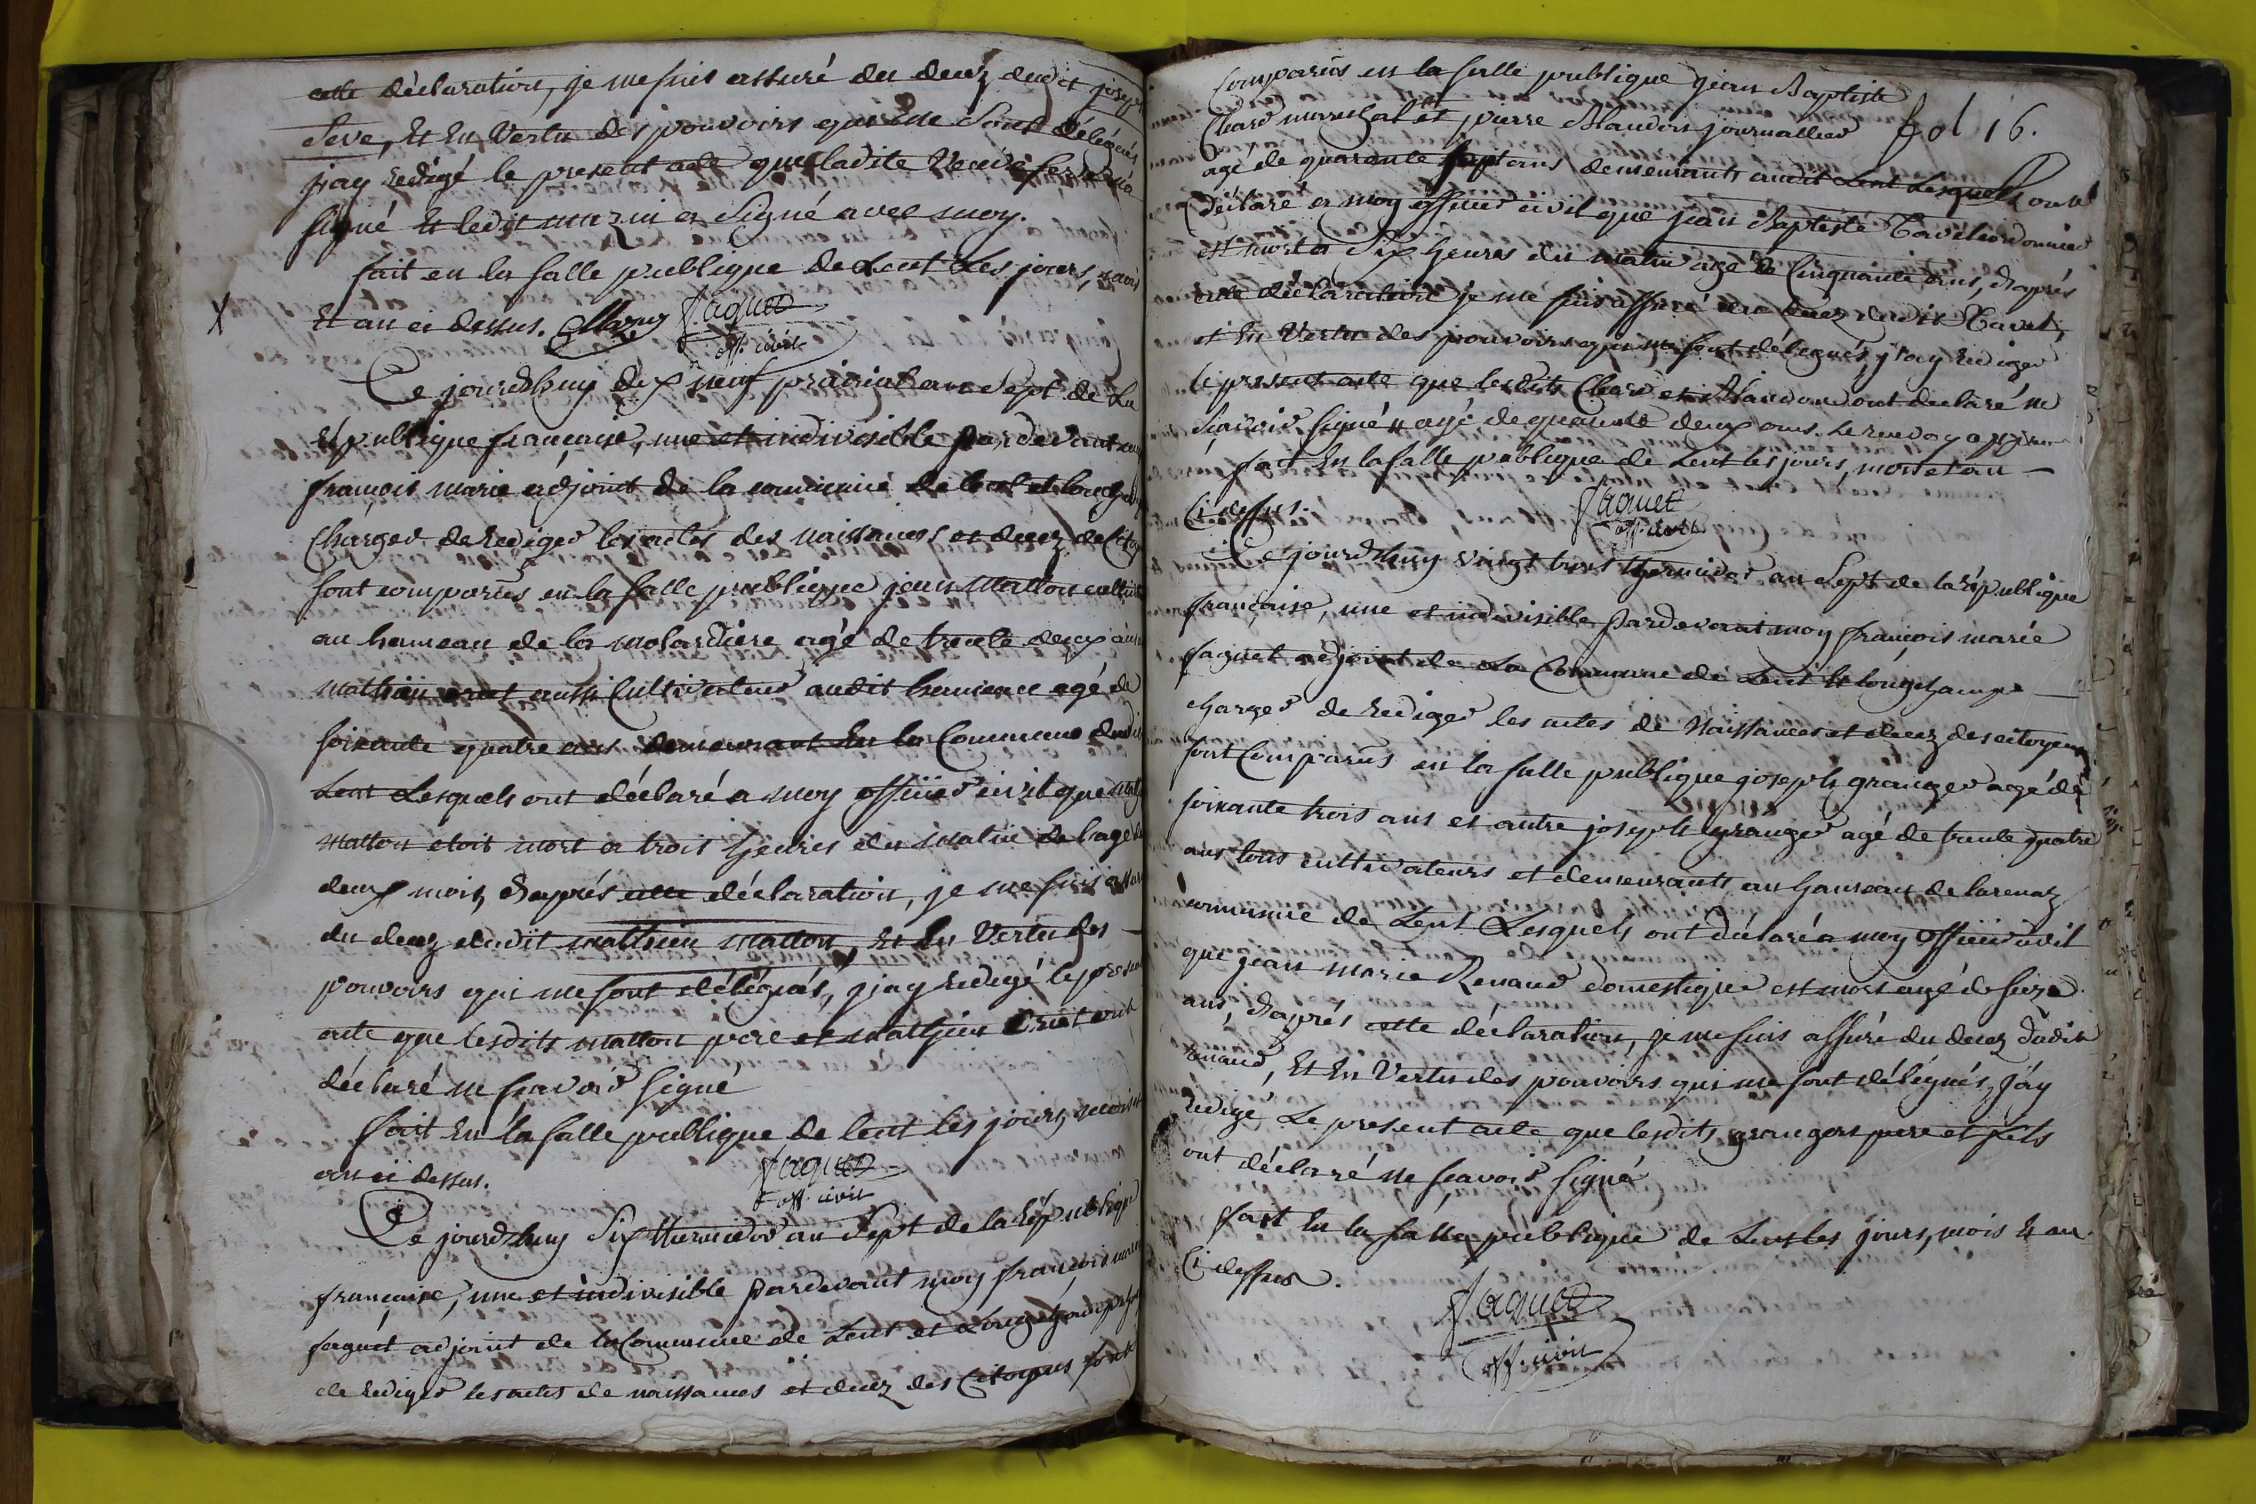 cette déclaration, je me suis assuré du decez dudit joseph
Seve, Et En Vertu des pouvoirs qui me Sont délégués
j'ay redigé le present acte que ladite Veuve
signé Et ledit mazui a Signé avec moy.
fait en la salle publique de Lent Les jours, mois
Et an ci dessus. Mazuy Faguet
off. civil
Ce jourdhuy dix neuf prairial an Sept de La
République française, une et indivisible pardevant moy
françois marie adjoint de la commune de Lent et longchamp
Charger de rediger les actes des naissances et decez de Citoy
sont comparus en la salle publique jean Matton cultiv
au hameau de la molardiere agé de trente deux ans
mathieu aussi Cultivateur audit hameau agé de
soixante quatre ans demeurant En la Commune dudit
Lent Lesquels ont déclaré a moy officier civil que math
Matton etoit mort a trois heures du matin de l'age de
deux mois, d'aprés cette déclaration, je me suis assuré
du decez dudit mathieu Matton, Et En Vertu des
pouvoirs qui me sont délégués, j'ay redigé le present
acte que lesdits matton pere et mathieu ont
déclaré ne sçavoir signé
fait En la salle publique de lent les jours, mois et
an ci dessus. Faguet
off. civil
Ce jourdhuy Six thermidor an Sept de la République
française, une et indivisible pardevant moy françois marie
faguet adjoint de la Commune de Lent et Longchamp
de rediger les actes de naissances et decez des Citoyens sont
Comparus en la salle publique jean Baptiste
Chard marechal et pierre Blandon journallier fol 16.
agé de quarante sept ans demeurants audit Lent Lesquels ont
Déclaré a moy officier civil que jean Baptiste Tavel cordonnier
est mort a Six heures du matin agé de Cinquante ans, d'aprés
cette déclaration je me suis assuré du decez dudit Tavel,
et En Vertu des pouvoirs qui me sont délegués, j'ay rediger
le present acte que lesdits Chard et Blandon ont declaré ne
sçavoir signé # agé de quarante deux ans. Le renvoy approuvé
fait En la salle publique de Lent les jours, mois et an
Ci dessus. Faguet
off. civil
Ce jourdhuy vingt trois thermidor an Sept de la république
française, une et indivisible pardevant moy françois marie
faguet adjoint de La Commune de Lent Et longchamp
charger de rediger les actes de Naissances et decez des citoyens
sont Comparus en la salle publique joseph granger agé de
soixante trois ans et autre joseph granger agé de trente quatre
ans tous cultivateurs et demeurants au hameau de larenaz
commune de Lent Lesquels ont déclaré a moy officier civil
que jean marie Renaud domestique est mort agé de seize
ans, d'aprés cette déclaration, je me suis assuré du decez dudit
renaud, Et En Vertu des pouvoirs qui me sont délégués, j'ay
redigé Le present acte que lesdits grangers pere et fils
ont déclaré ne sçavoir signé
fait En la salle publique de Lent les jours, mois Et an
Ci dessus.
Faguet
off. civil